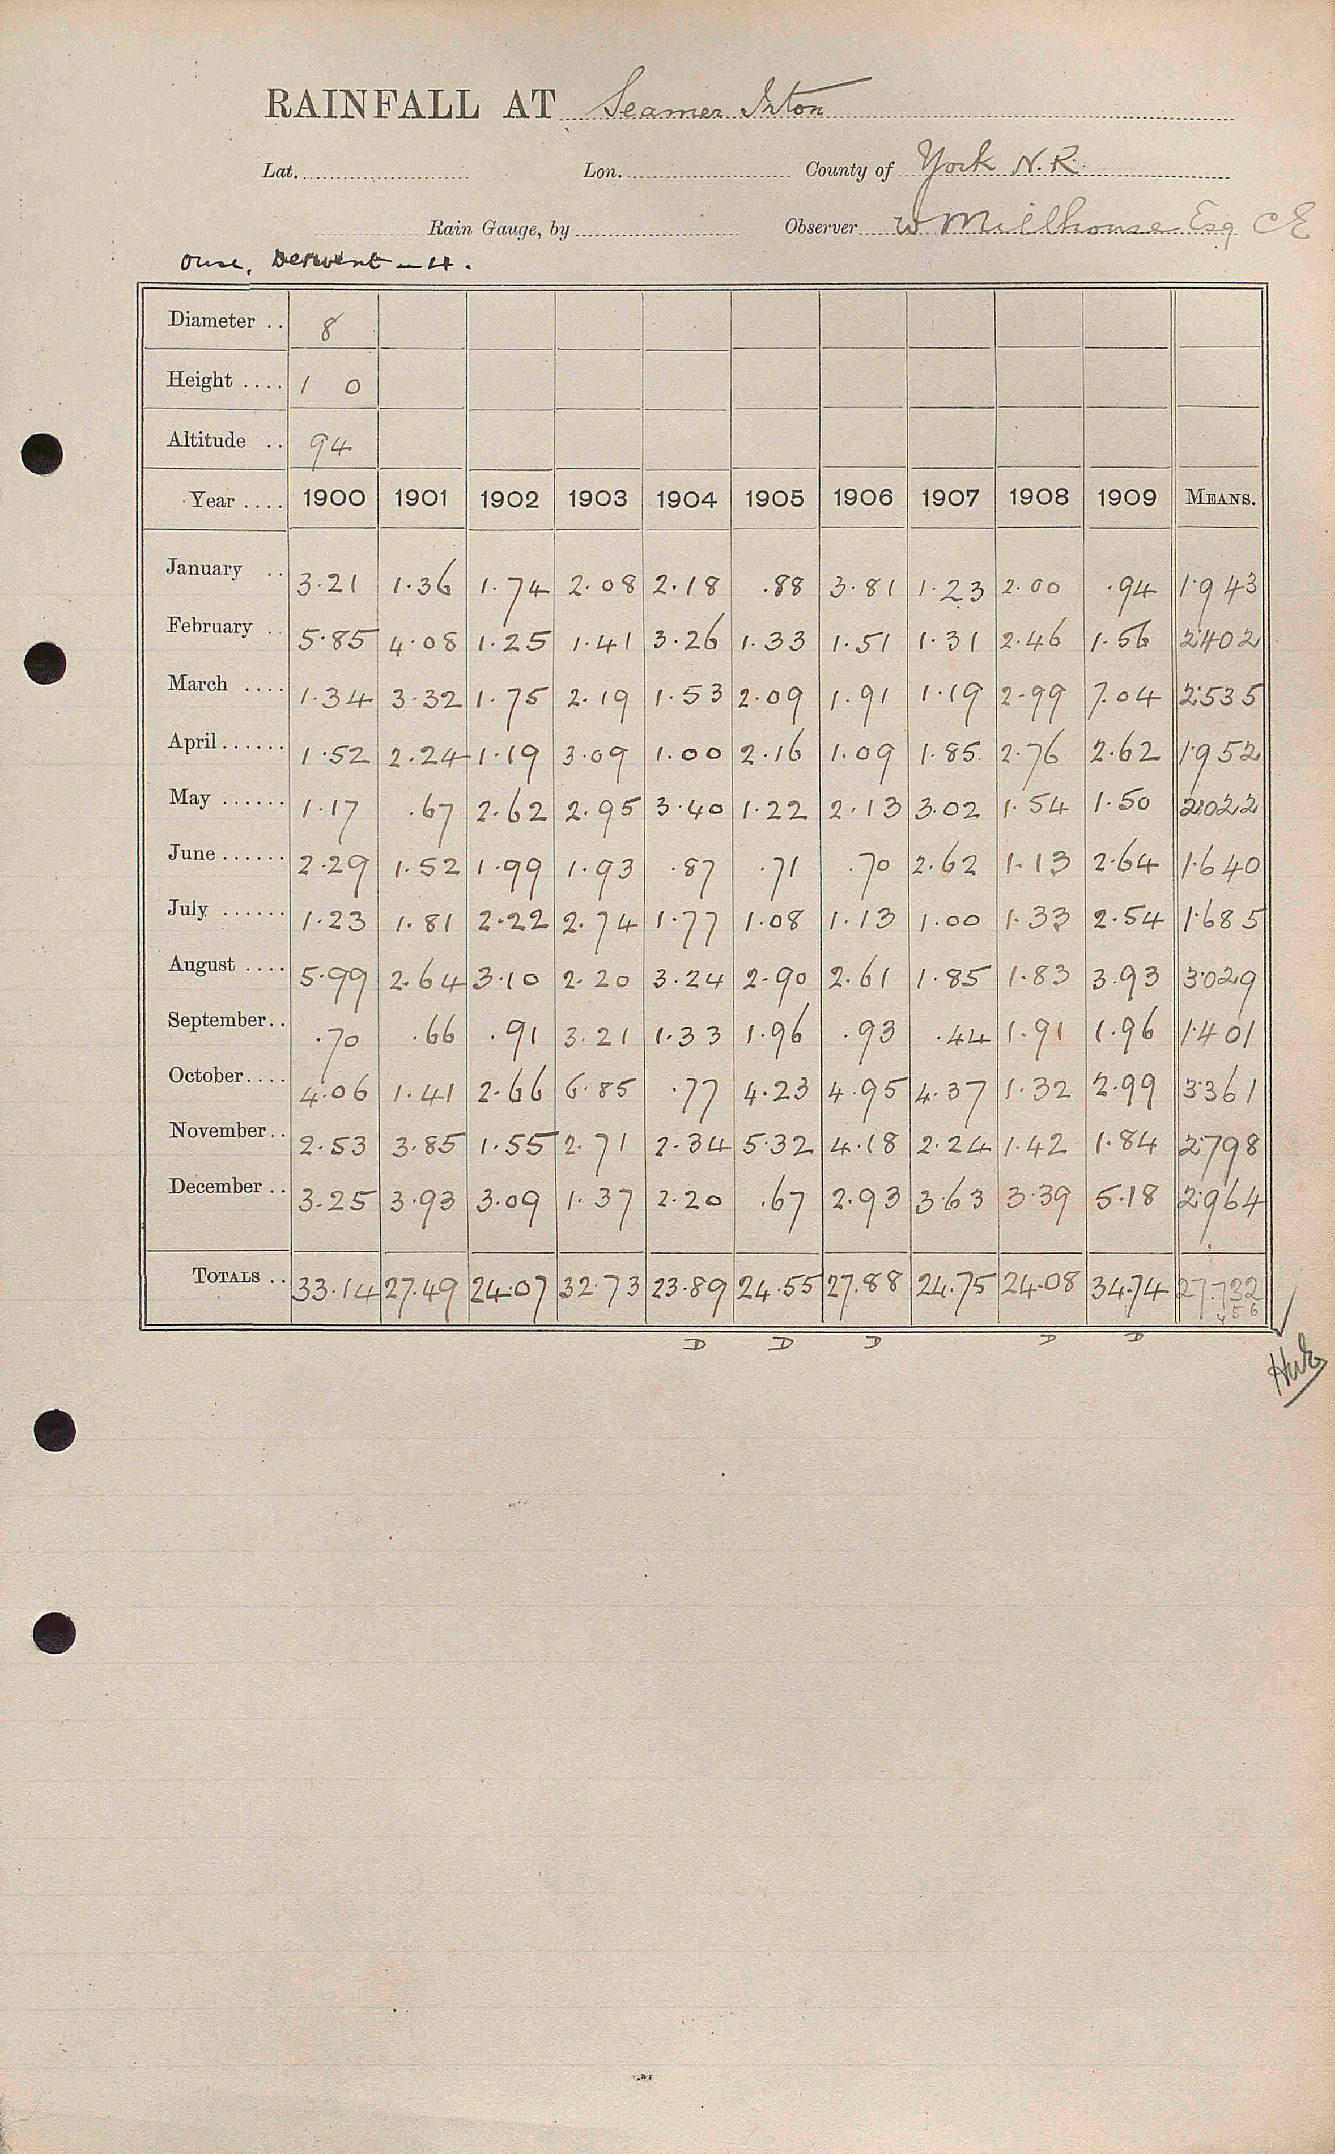 RAINFALL AT Seamer Irton
Lat. Lon. County of York N.R.
Rain Gauge, by Observer W Millhouse Esq CE
Ouse, Derwent - 4.
Diameter .. 8
Height .... 1 0
Altitude .. 94
Year .... 1900 1901 1902 1903 1904 1905 1906 1907 1908 1909 MEANS.
January .. 3.21 1.36 1.74 2.08 2.18 .88 3.81 1.23 2.00 .94 1.943
February .. 5.85 4.08 1.25 1.41 3.26 1.33 1.51 1.31 2.46 1.56 2.402
March .... 1.34 3.32 1.75 2.19 1.53 2.09 1.91 1.19 2.99 7.04 2.535
April...... 1.52 2.24 1.19 3.09 1.00 2.16 1.09 1.85 2.76 2.62 1.952
May ...... 1.17 .67 2.62 2.95 3.40 1.22 2.13 3.02 1.54 1.50 2.022
June ...... 2.29 1.52 1.99 1.93 .87 .71 .70 2.62 1.13 2.64 1.640
July ...... 1.23 1.81 2.22 2.74 1.77 1.08 1.13 1.00 1.33 2.54 1.685
August .... 5.99 2.64 3.10 2.20 3.24 2.90 2.61 1.85 1.83 3.93 3.029
September.. .70 .66 .91 3.21 1.33 1.96 .93 .44 1.91 1.96 1.401
October.... 4.06 1.41 2.66 6.85 .77 4.23 4.95 4.37 1.32 2.99 3.361
November.. 2.53 3.85 1.55 2.71 2.34 5.32 4.18 2.24 1.42 1.84 2.798
December .. 3.25 3.93 3.09 1.37 2.20 .67 2.93 3.63 3.39 5.18 2.964
TOTALS .. 33.14 27.49 24.07 32.73 23.89 24.55 27.88 24.75 24.08 34.74 27.732
D D D D D